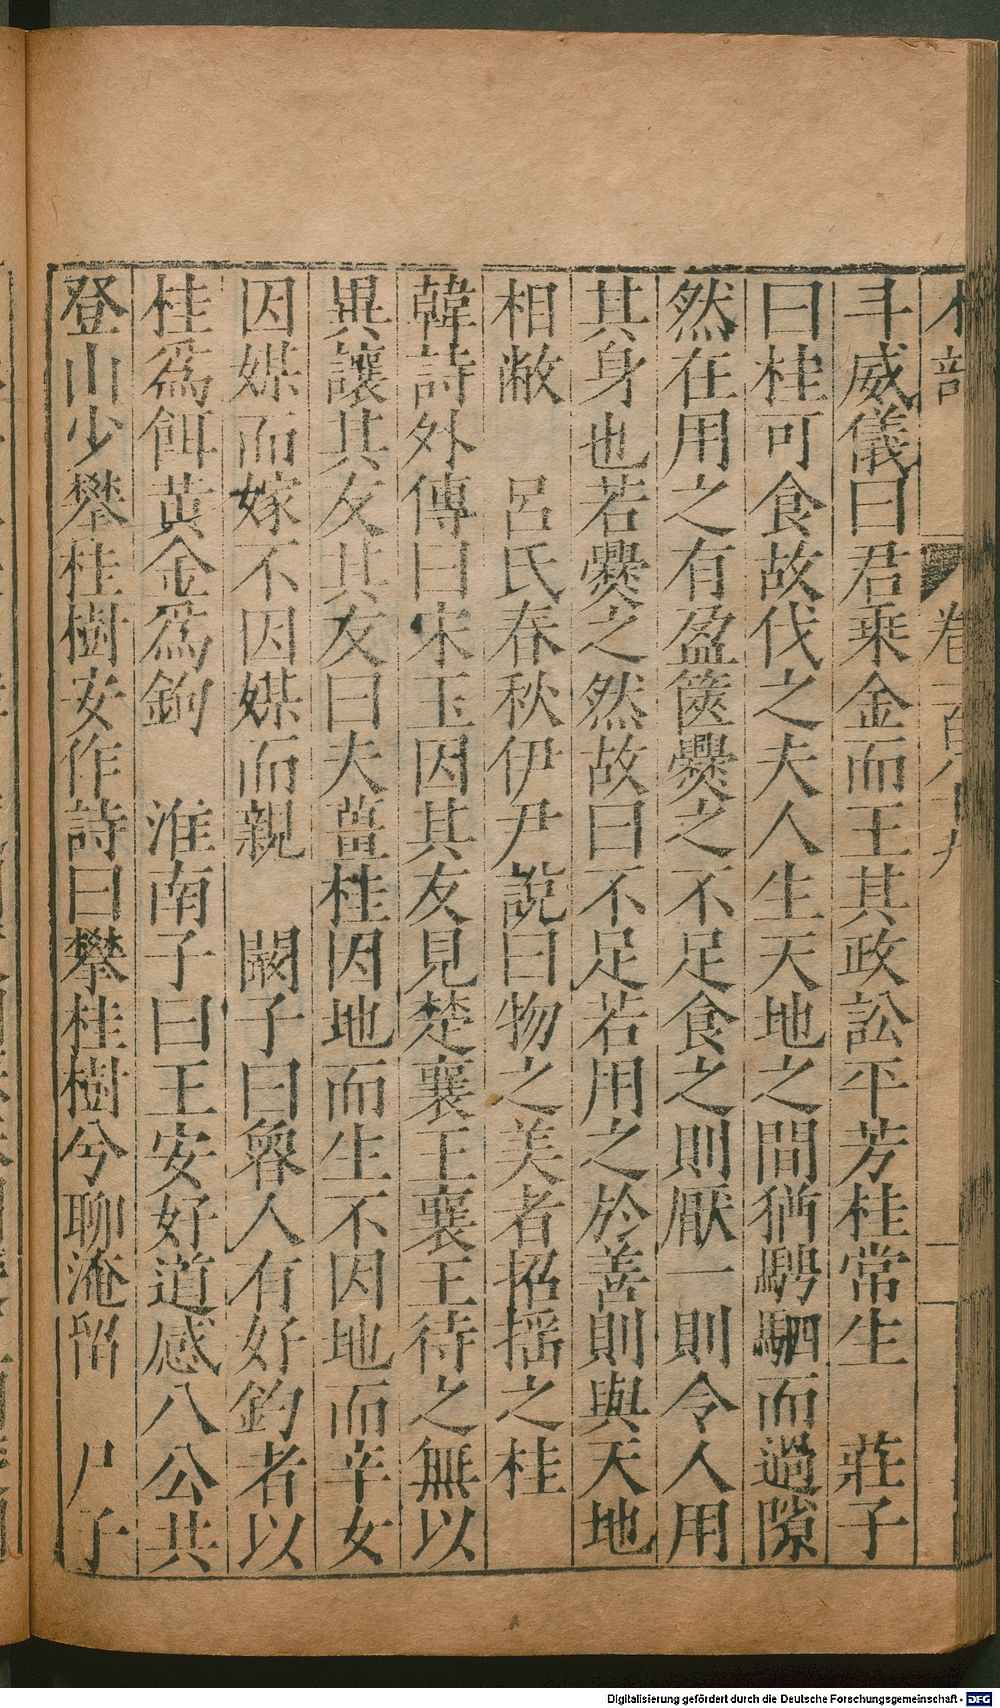 木部 卷一百八十九
斗威儀曰君乘金而王其政訟平芳桂常生 莊子
曰桂可食故伐之夫人生天地之間猶騁駟而過隙
然在用之有盈篋爨之不足食之則厭一則令人用
其身也若爨之然故曰不足若用之於善則與天地
相敝 呂氏春秋伊尹說曰物之美者招揺之桂
韓詩外傳曰宋玉因其友見楚襄王襄王待之無以
異讓其友其友曰夫薑桂因地而生不因地而辛女
因媒而嫁不因媒而親 闞子曰魯人有好釣者以
桂爲餌黃金爲鉤 淮南子曰王安好道感八公共
登山少攀桂樹安作詩曰攀桂樹兮聊淹留 尸子
Digitalisierung gefördert durch die Deutsche Forschungsgemeinschaft - DFG